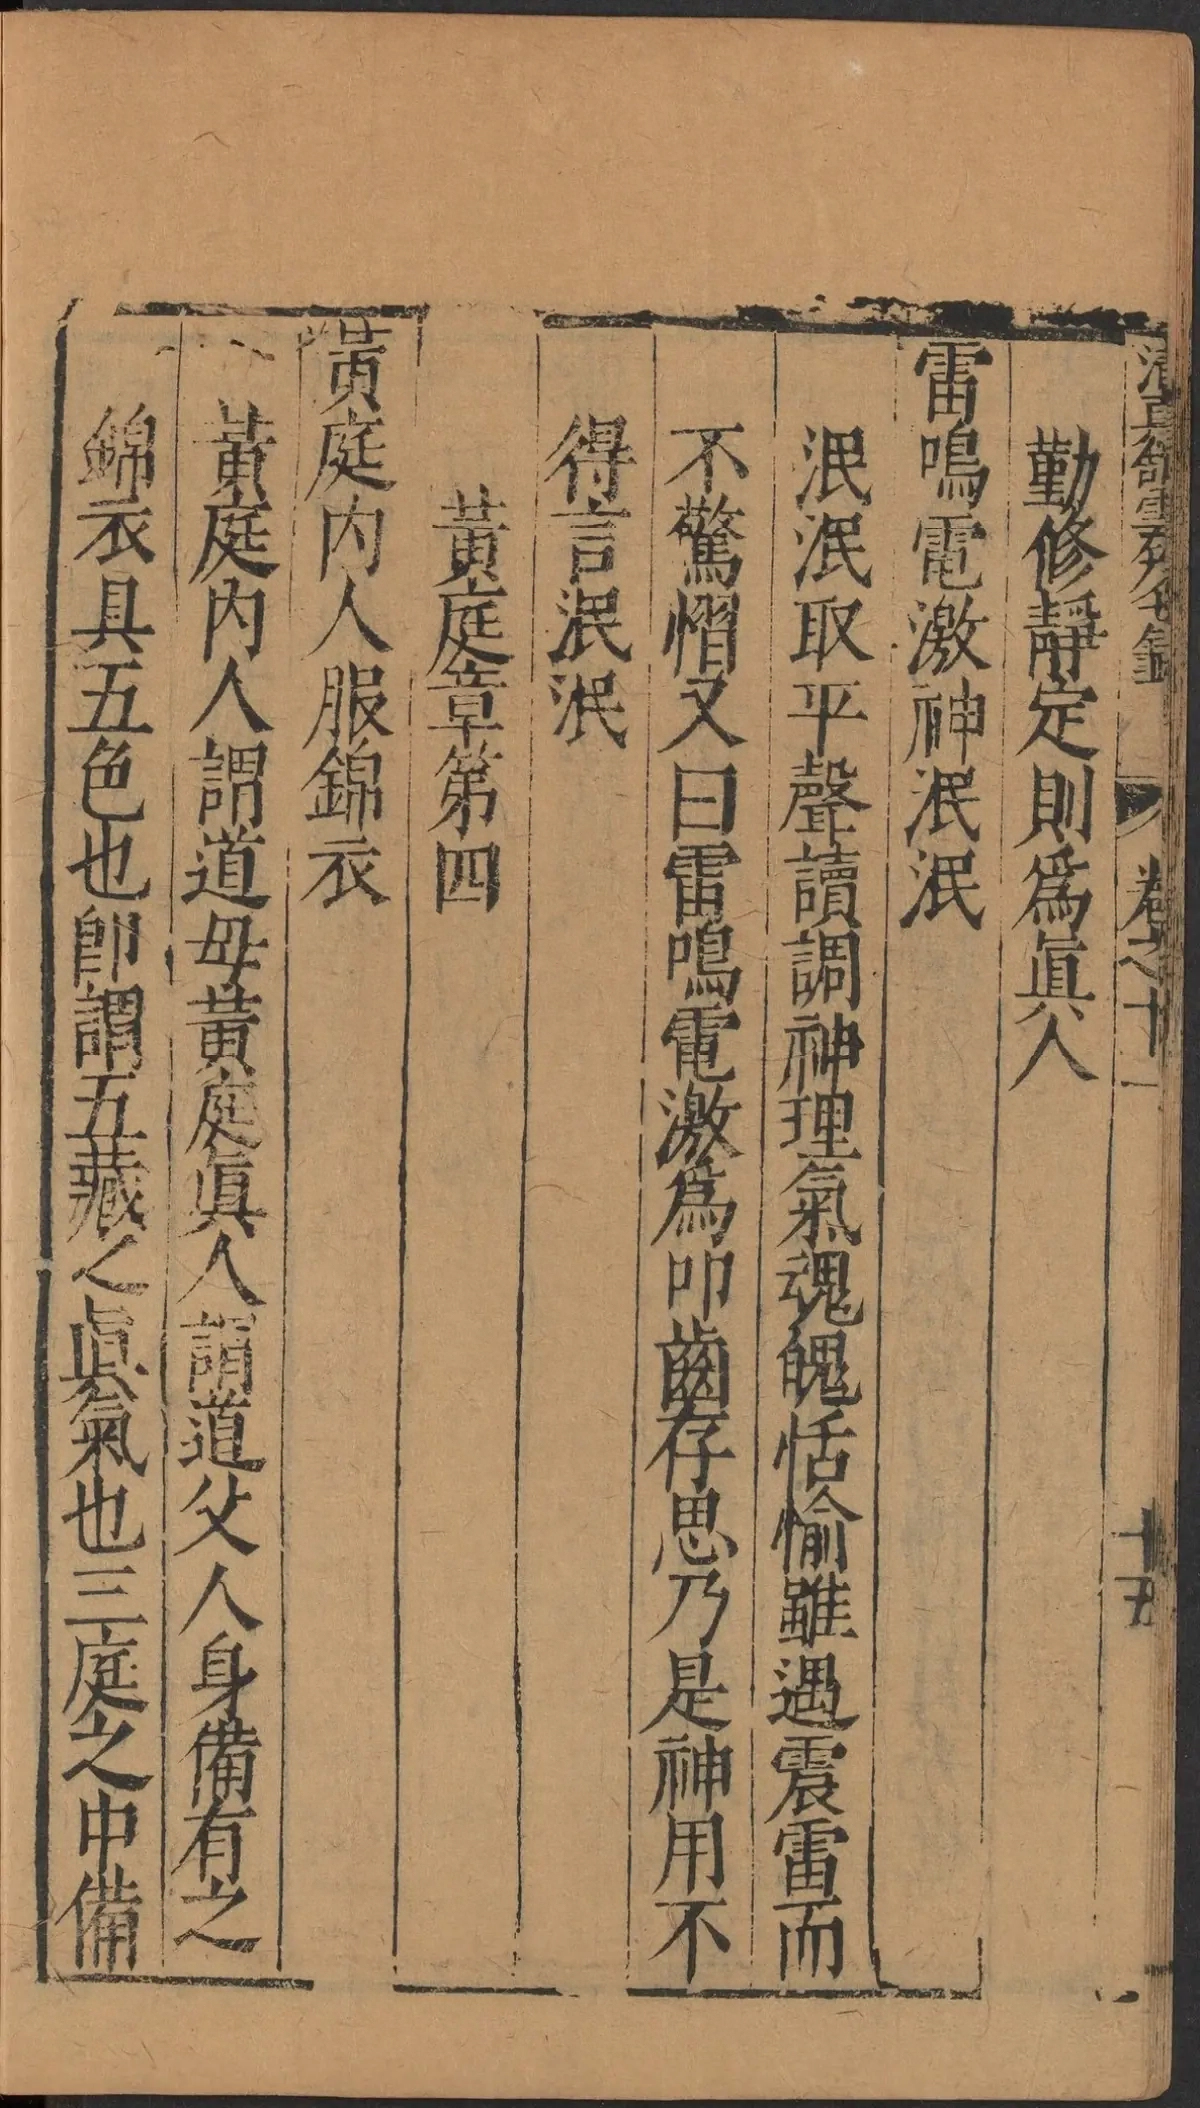 清真館雲笈七籤 卷之十一 十五
勤修靜定則為眞人
雷鳴電激神泯泯
泯泯取平聲讀調神理氣魂魄恬愉雖遇震雷而
不驚慴又曰雷鳴電激為叩齒存思乃是神用不
得言泯泯
黃庭章第四
黃庭內人服錦衣
黃庭內人謂道母黃庭眞人謂道父人身備有之
錦衣具五色也卽謂五藏之眞氣也三庭之中備